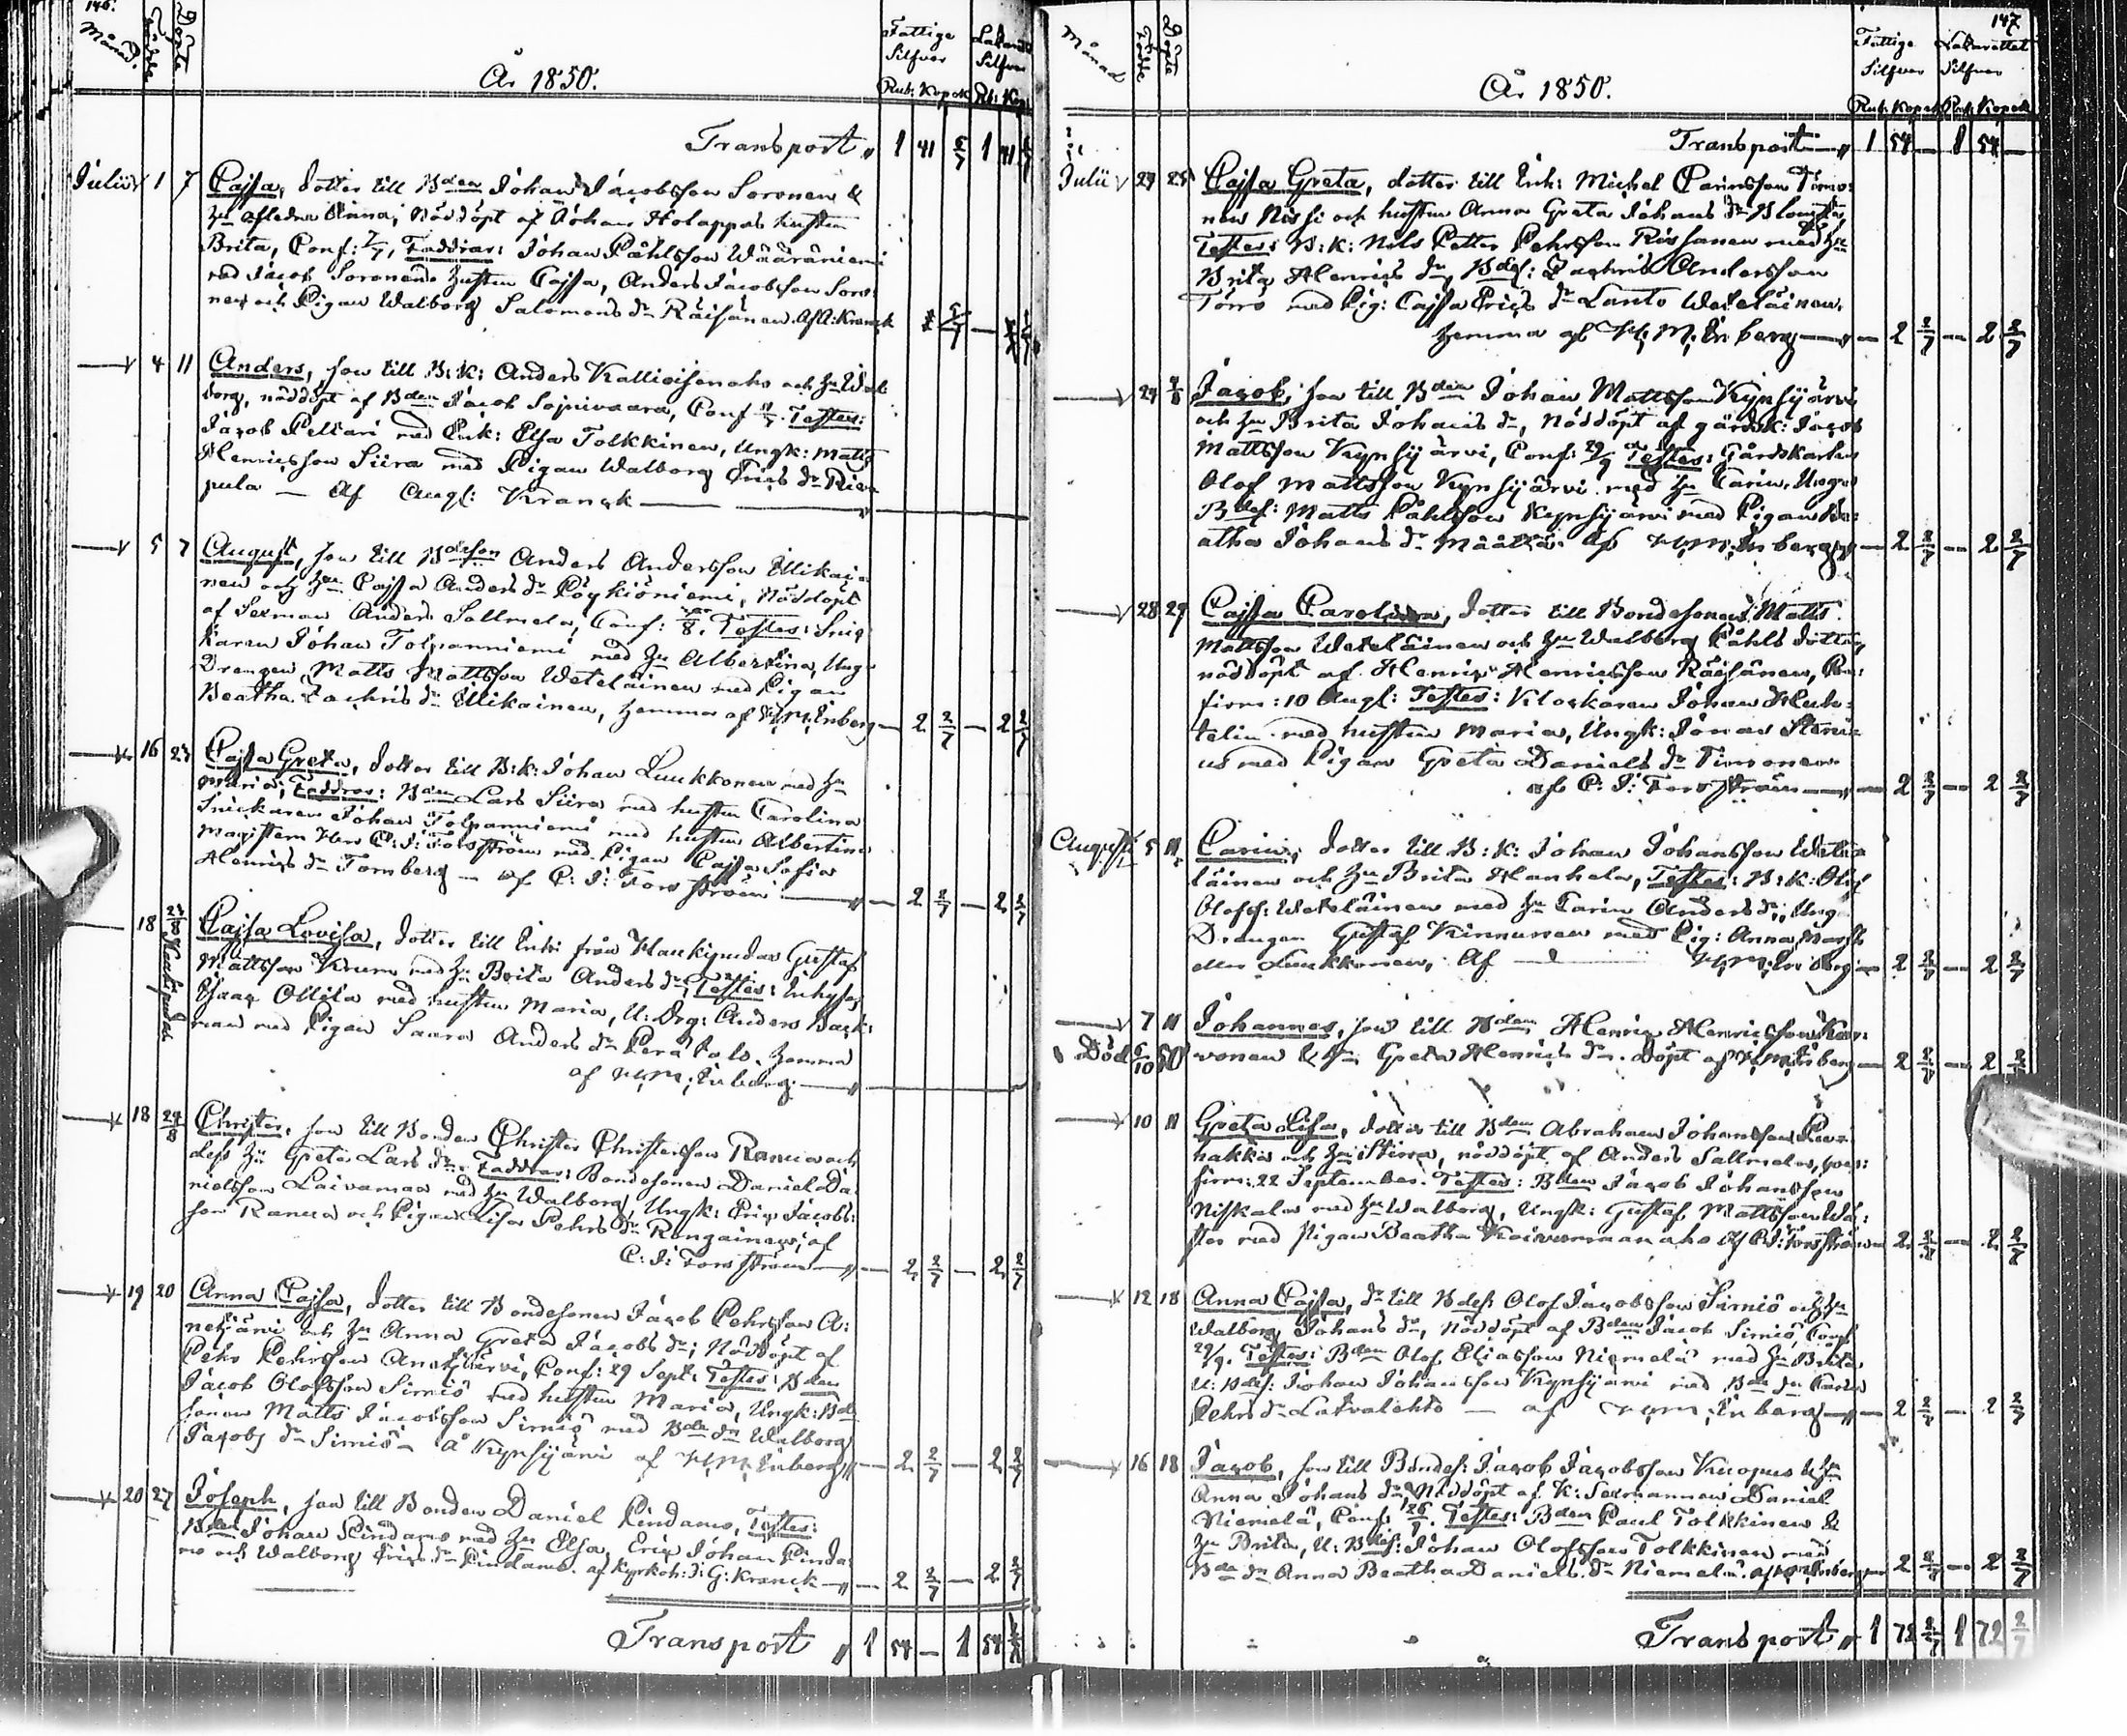 146.
Månad. Födde Döpte
År 1850.
Fattige Silfver Lazarett Silfver
Rub: Kopek Rb: Kop
Transport „ 1 41 5/7 1 41 5/7
Julii 1 7 Cajsa, dotter till Bden Johan Jacobsson Soronen &
hu afledna Anna, Nöddöpt af Johans Holappas hustru
Brita, Conf: 7/7, Faddrar: Johan Påhlsson Wääräniemi
med Jacob Soronens hustru Cajsa, Anders Jacobsson Soro:
nen och Pigan Walborg Salomons dr Räisänen. Af A: Kranck
4 11 Anders, son till B: K: Anders Kallioisenaho och hu Wal
borg, nöddöpt af Bden Jacob Sopivaara, Conf Testes:
Jacob Peltari med Enk: Elsa Tolkkinen, Ungk: Matts
Henricsson Siira med Pigan Walborg Erics dr
pula — Af Kranck
5 7 August, son till Bdeson Anders Andersson Mikai
nen och hu Cajsa Anders dr Pöykiöniemi, Nöddöpt
af Sexman Anders Sallmela, Conf: Testes: Snic
karen Johan Tolpanniemi med hu Albertina, Ung
Drengen Matts Mattsson Weteläinen med Pigan
Beatha Zachris dr Mikainen, hemma af Enberg — 2 2/7 — 2 2/7
16 23 Cajsa Greta, dotter till B: K: Johan Luukkonen med hu
Maria, Faddrar: Bden Lars Siira med hustru Carolina
Snickaren Johan Tolpanniemi med hustru Albertina
Magistern Herr C: J: Forsström med Pigan Cajsa Sofia
Henrics dr Fornberg — af C: J: Forsström — 2 2/7 — 2 2/7
18 Haukipudas Cajsa Lovisa, dotter till Enk: från Haukipudas Gustaf
Mattsson Krum med hu Brita Anders dr, Testes: Inhyses
Isaac Ollila med hustru Maria, U: Drg: Anders Back:
man med Pigan Saara Anders dr Perätalo. hemma
af Enberg.
18 24/8 Christer, son till Bonden Christer Christersson Ranua och
dess hu Greta Lars dr. Faddrar: Bondesonen Daniel Da
nielsson Laivamaa med hu Walborg, Ungk: Eric Jacobs:
son Ranua och Pigan Lisa Pehrs dr Rongainen; af
C: J: Forsström — 2 2/7 — 2 2/7
19 20 Anna Cajsa, dotter till Bondesonen Jacob Pehrsson A:
netjärvi och hu Anna Greta Jacobs dr; Nöddöpt af
Pehr Pehrsson Anetjärvi, Conf: 29 Sept: Testes: Bden
Jacob Olofsson Simiö med hustru Maria, Ungk: Bde
sonen Matts Jacobsson Simiö med Bde dr Walborg
Jacobs dr Simiö å Kynsijärvi af Enberg — 2 2/7 — 2 2/7
20 27 Joseph, son till Bonden Daniel Pindamo, Testes:
Bden Johan Pindamo med hu Elsa, Eric Johan Pinda:
mo och Walborg Erics dr Pindamo. af Kyrkoh: J: G: Kranck — 2 2/7 — 2 2/7
Transport „ 1 54 — 1 54
147
Månad Födde Döpte
År 1850.
Fattige Silfver Lazarettet Silfver
Rub: Kopek Rub: Kopek
Transport — „ 1 54 — 1 54 —
Julii 23 25 Cajsa Greta, dotter till Enk: Michel Carinsson Törrö:
nen Nissi och hustru Anna Greta Johans dr Blomster,
Testes: B: K: Nils Petter Pehrsson Rissanen med hu
Brita Henrics dr, Bdes: Zachris Andersson
Törrö med Pig: Cajsa Erics dr Lanto Weteläinen.
hemma af Enberg — 2 2/7 — 2 2/7
24 Jacob, son till Bden Johan Mattsson Kynsijärvi
och hu Brita Johans dr, Nöddöpt af gårdsk: Jacob
Mattsson Kynsijärvi, Conf: 29/9 Testes: Gårdskarlen
Olof Mattsson Kynsijärvi med hu Carin, Unga
Bdes: Matts Påhlsson Kynsijärvi med Pigan Be:
atha Johans dr Määttä. Af Enberg — 2 2/7 — 2 2/7
28 29 Cajsa Carolina, dotter till Bondesonen Matts
Mattsson Weteläinen och hu Walborg Påhls dotter,
nöddöpt af Henric Henricsson Räisänen, Con:
firm: 10 Aug: Testes: Klockaren Johan Huh:
telin med hustru Maria, Ungk: Jonas Steni:
us med Pigan Greta Daniels dr Timonen
af C: J: Forsström — 2 2/7 — 2 2/7
Augusti 5 11 Carin, dotter till B: K: Johan Johansson Wete:
läinen och hu Brita Hanhela, Testes: B: K: Olof
Olofss: Weteläinen med hu Carin Anders dr, Ung
Drengen Gustaf Kinnunen med Pig: Anna Marg
dler Luukkonen, Af Enberg — 2 2/7 — 2 2/7
7 11 Johannes, son till Bden Henric Henricsson Kar:
Död 6/10 50 vonen & hu Greta Henrics dr. döpt af Enberg — 2 2/7 — 2 2/7
10 11 Greta Lisa, dotter till Bden Abraham Johansson
hakka och hu Stina, nöddöpt af Anders Sallmela, con:
firm: 22 September. Testes: Bden Jacob Johansson
Niskala med hu Walborg, Ungk: Gustaf Mattsson
med Pigan Beatha Koivumaanaho Af C: J: Forsström — 2 2/7 — 2 2/7
12 18 Anna Cajsa, dr till Bdes: Olof Jacobsson Simiö och hu
Walborg Johans dr, Nöddöpt af Bden Jacob Simiö, Conf
29/9. Testes: Bden Olof Eliasson Niemelä med hu Brita
U: Bdes: Johan Johansson Kynsijärvi med Bde dr Carin
Pehrs dr Latvalehto — af Enberg — 2 2/7 — 2 2/7
16 18 Jacob, son till Bondes: Jacob Jacobsson Kuopus & hu
Anna Johans dr, Nöddöpt af K: Sexmannen Daniel
Niemelä, Conf: Testes: Bden Paul Tolkkinen &
hu Brita, U: Bdes: Johan Olofsson Tolkkinen med
Bde dr Anna Beatha Daniels dr Niemelä. af Enberg — 2 2/7 — 2 2/7
Transport „ 1 72 2/7 1 72 2/7